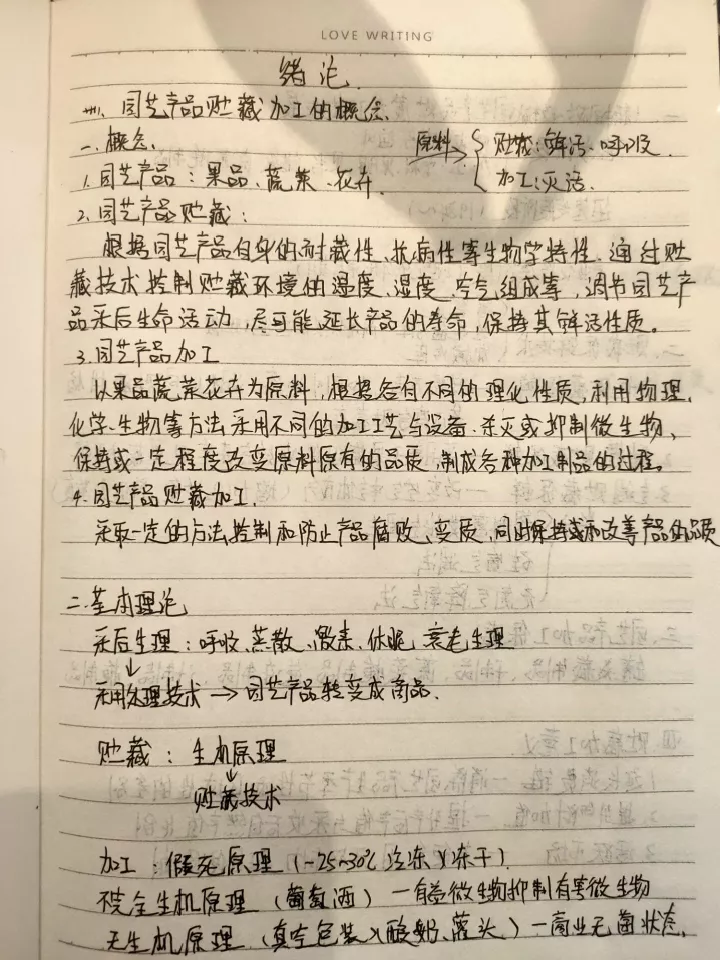 LOVE WRITING
绪论.
一、园艺产品贮藏加工的概念.
一.概念. 原料→{贮藏:鲜活.呼吸.
1.园艺产品:果品、蔬菜、花卉. 加工:灭活.
2.园艺产品贮藏:
根据园艺产品自身的耐藏性、抗病性等生物学特性.通过贮
藏技术控制贮藏环境的湿度、湿度、空气组成等,调节园艺产
品采后生命活动,尽可能延长产品的寿命,保持其鲜活性质。
3.园艺产品加工
以果品蔬菜花卉为原料,根据各自不同的理化性质,利用物理.
化学.生物等方法采用不同的加工工艺与设备.杀灭或抑制微生物、
保持或一定程度改变原料原有的品质,制成各种加工制品的过程。
4.园艺产品贮藏加工.
采取一定的方法控制和防止产品腐败、变质,同时保持或和改善产品的品质
二.基本理论
采后生理:呼吸、蒸散、激素、休眠、衰老生理
↓
采用处理技术→园艺产品转变成商品.
贮藏:生机原理
↓
贮藏技术
加工:假死原理(-25~30℃冷冻)(冻干).
不完全生机原理(葡萄酒)—有益微生物抑制有害微生物
无生机原理(真空包装)(酸奶、罐头.)—商业无菌状态.